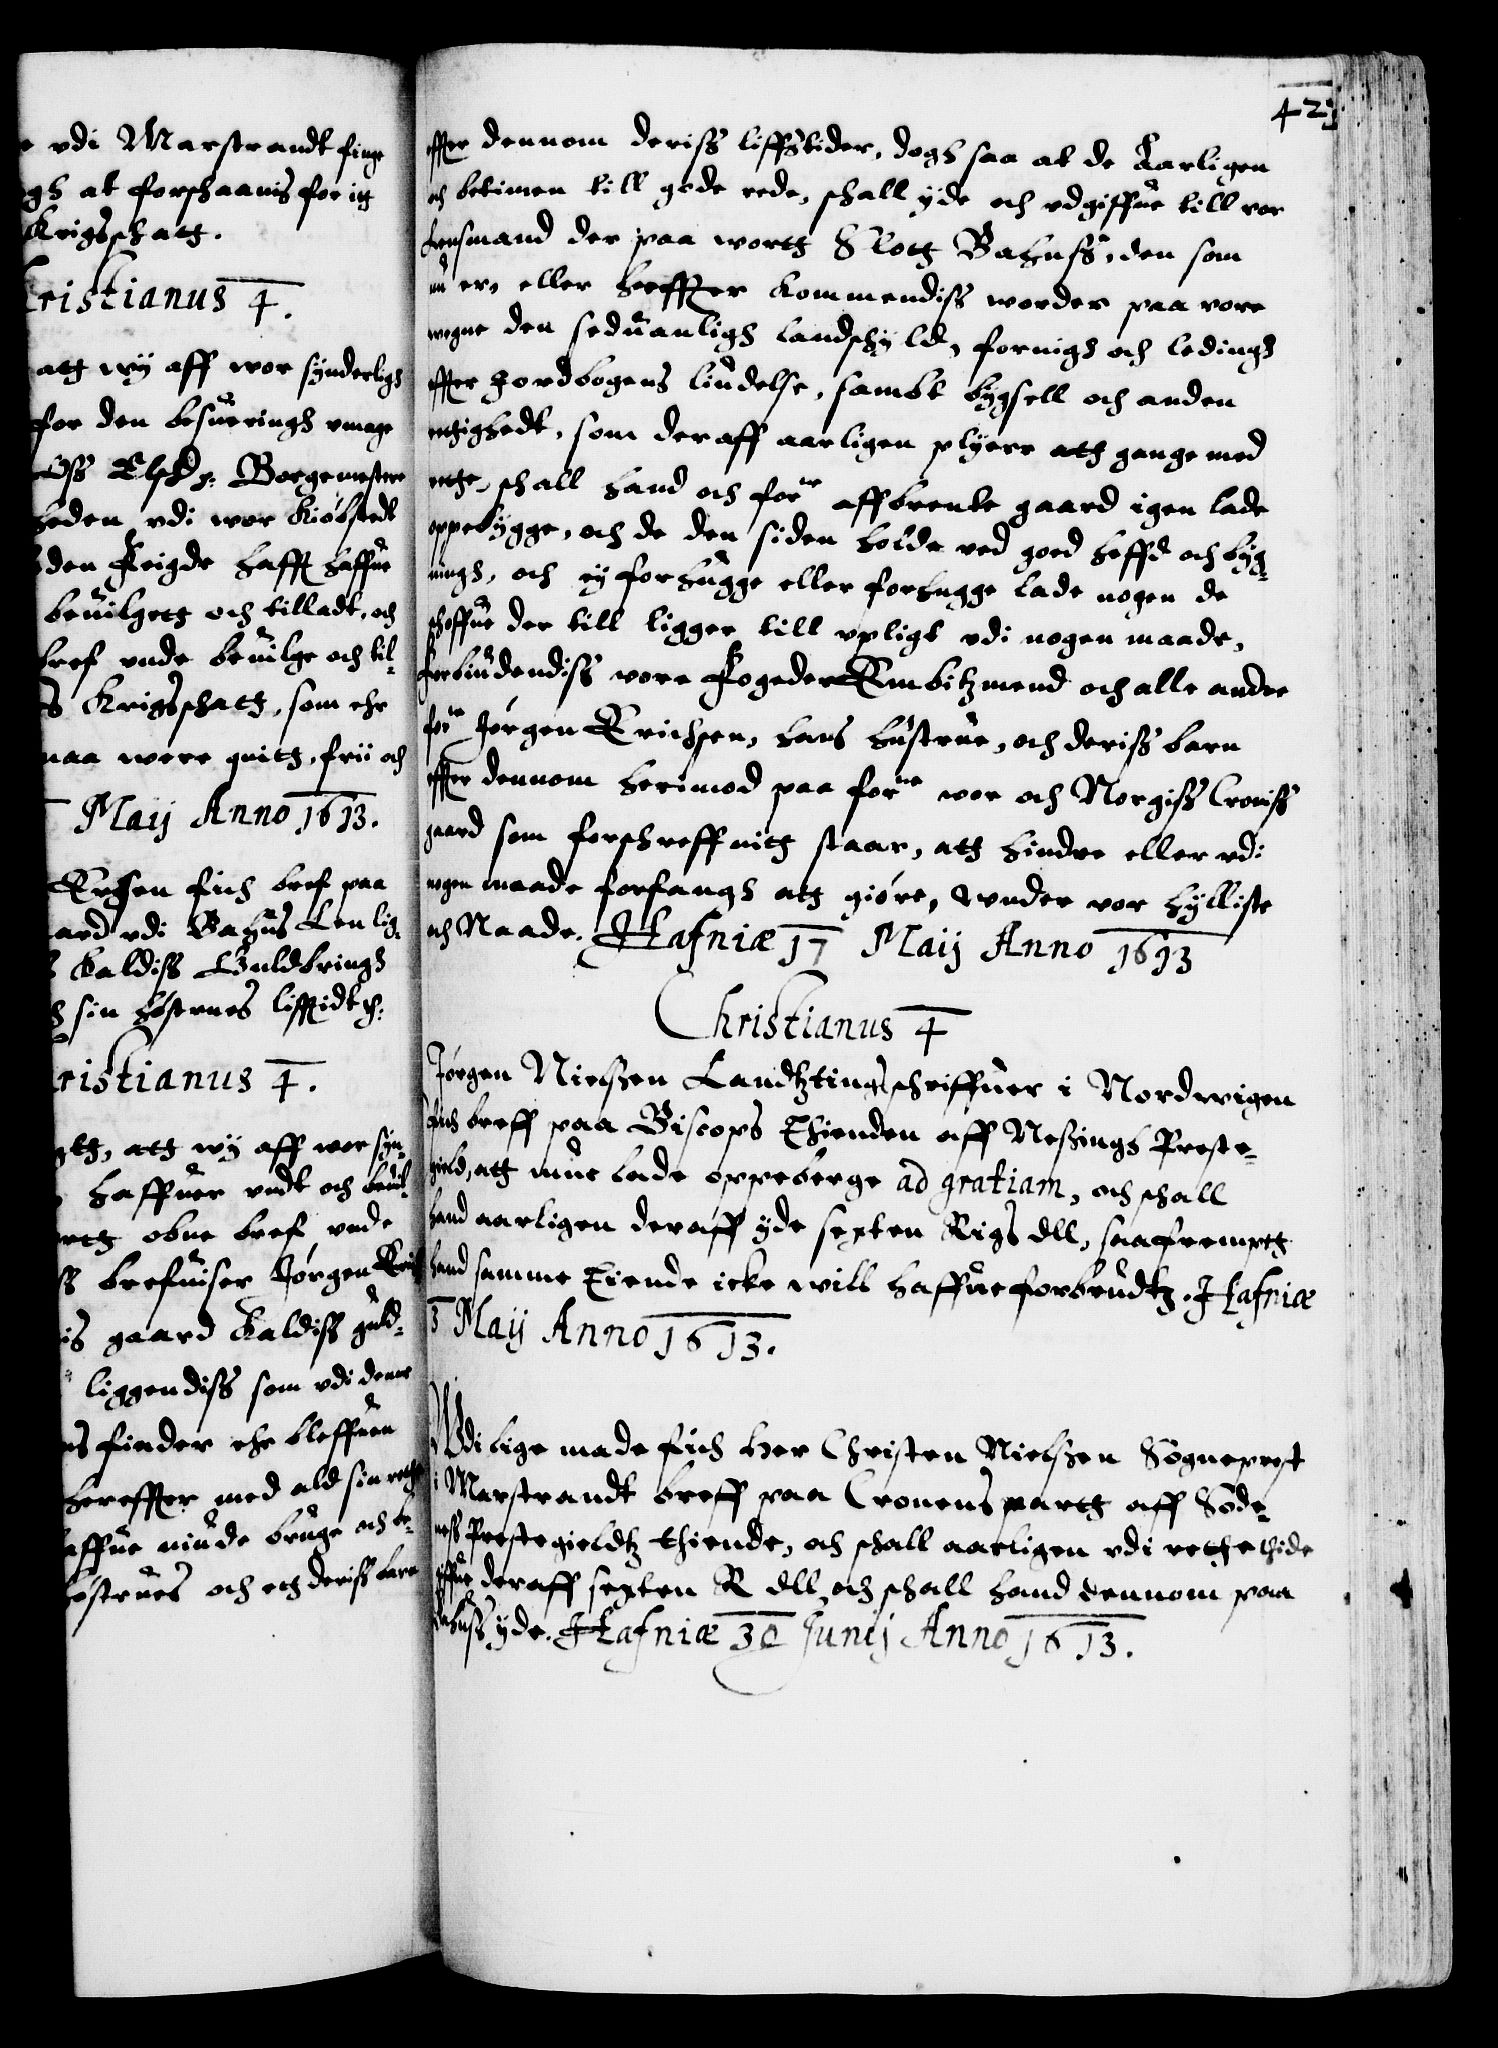 vdi Marstrandt finge
at forschaanis for itt
Krigsschatt.
Christianus 4.
att wij aff wor synderligh
for den besueringh vmage
Oss Elsk: Borgemestere
heden vdi wor Kiöbstedt
den Feigde hafft haffue
beuilgett och tilladt, och
bref vnde beuilge och til-
Krigsschatt, som ehr
maa were quitt, frii och
Maij Anno 1613.
Ersen fich bref paa
gaard vdi Bahus Len lig-
Kaldiss Guldbringh
sin höstrues liffstidt
Christianus 4.
att wij aff wor syn-
haffuer vndt och beuil-
obne bref vnde
brefuiser Jörgen Erich
gaard Kaldiss guld-
liggendiss som vdi denne
finder ehr bleffuen
hereffter med ald sin rette
haffue niude bruge och be-
höstrues och ett deriss barn
423
effter dennom deriss liffstider, dogh saa at de Aarligen
och betimen till gode rede, schall yde och vdgiffue till vor
Lensmand der paa wortt Slott Bahuss, den som
nu er, eller heeffter kommendiss worder paa vore
wegne den seduanligh landschyld, fornigh och ledingh
effter Jordbogens liudelse, sambt bygsell och anden
rettighedt, som deraff aarligen plyere att gange med
rette, schall hand och forne affbrente gaard igen lade
oppebygge, och de den siden holde ved goed heffd och byg-
ningh, och ey forhugge eller forhugge lade nogen de
schoffue der till ligger till vpligt vdi nogen maade,
forbiudendiss vore Fogeder Embitzmend och alle andre
forne Jörgen Erichsen, hans hustrue, och deriss barn
effter dennom herimod paa forne wor och Norgiss Croniss
gaard som forschreffuitt staar, att hindre eller vdi
nogen maade forfangh att giöre, wnder vor hylliste
och Naade. Hafniæ 17 Maij Anno 1613
Christianus 4
Jörgen Nielssen Landtztingschriffuer i Nordwigen
fich breff paa Biscops Thienden aff Nessingh Preste-
gield, att mue lade oppeberge ad gratiam, och schall
hand aarligen deraff yde sexten Rigs dll, saafremptt
hand samme Tiende icke will haffue forbrudtz. Hafniæ
3 Maij Anno 1613.
Wdi lige made fich Her Christen Nielssen Sogneprest
i Marstrandt breff paa Cronens partt aff Sode-
ness Prestegieldtz thiende, och schall aarligen vdi rette thide
giffue deraff sexten R dll och schall hand dennom paa
Bahuss yde. Hafniæ 30 Junij Anno 1613.